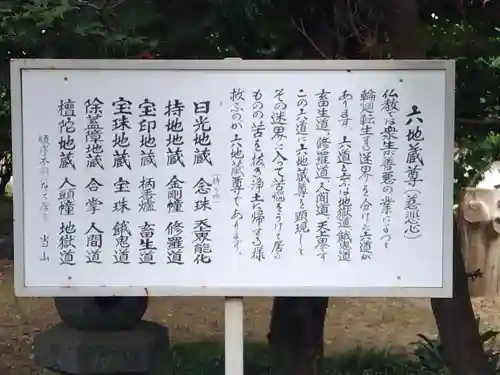 六地蔵尊(慈悲心)
仏教では衆生の善悪の業によつて
輪廻転生する迷界を分けて六道が
あります。六道とは地獄道、餓鬼道
畜生道、修羅道、人間道、天上界です
この六道に六地蔵尊を顕現して
その迷界に入って苦悩をうけて居る
ものの苦を抜き浄土に帰する様
救ふのが六地蔵尊であります。
日光地蔵 念珠 天上能化
持地地蔵 金剛幢 修羅道
宝印地蔵 柄香爐 畜生道
宝珠地蔵 宝珠 餓鬼道
除蓋障地蔵 合掌 人間道
檀陀地蔵 人頭幢 地獄道
順序不同なるて 当山